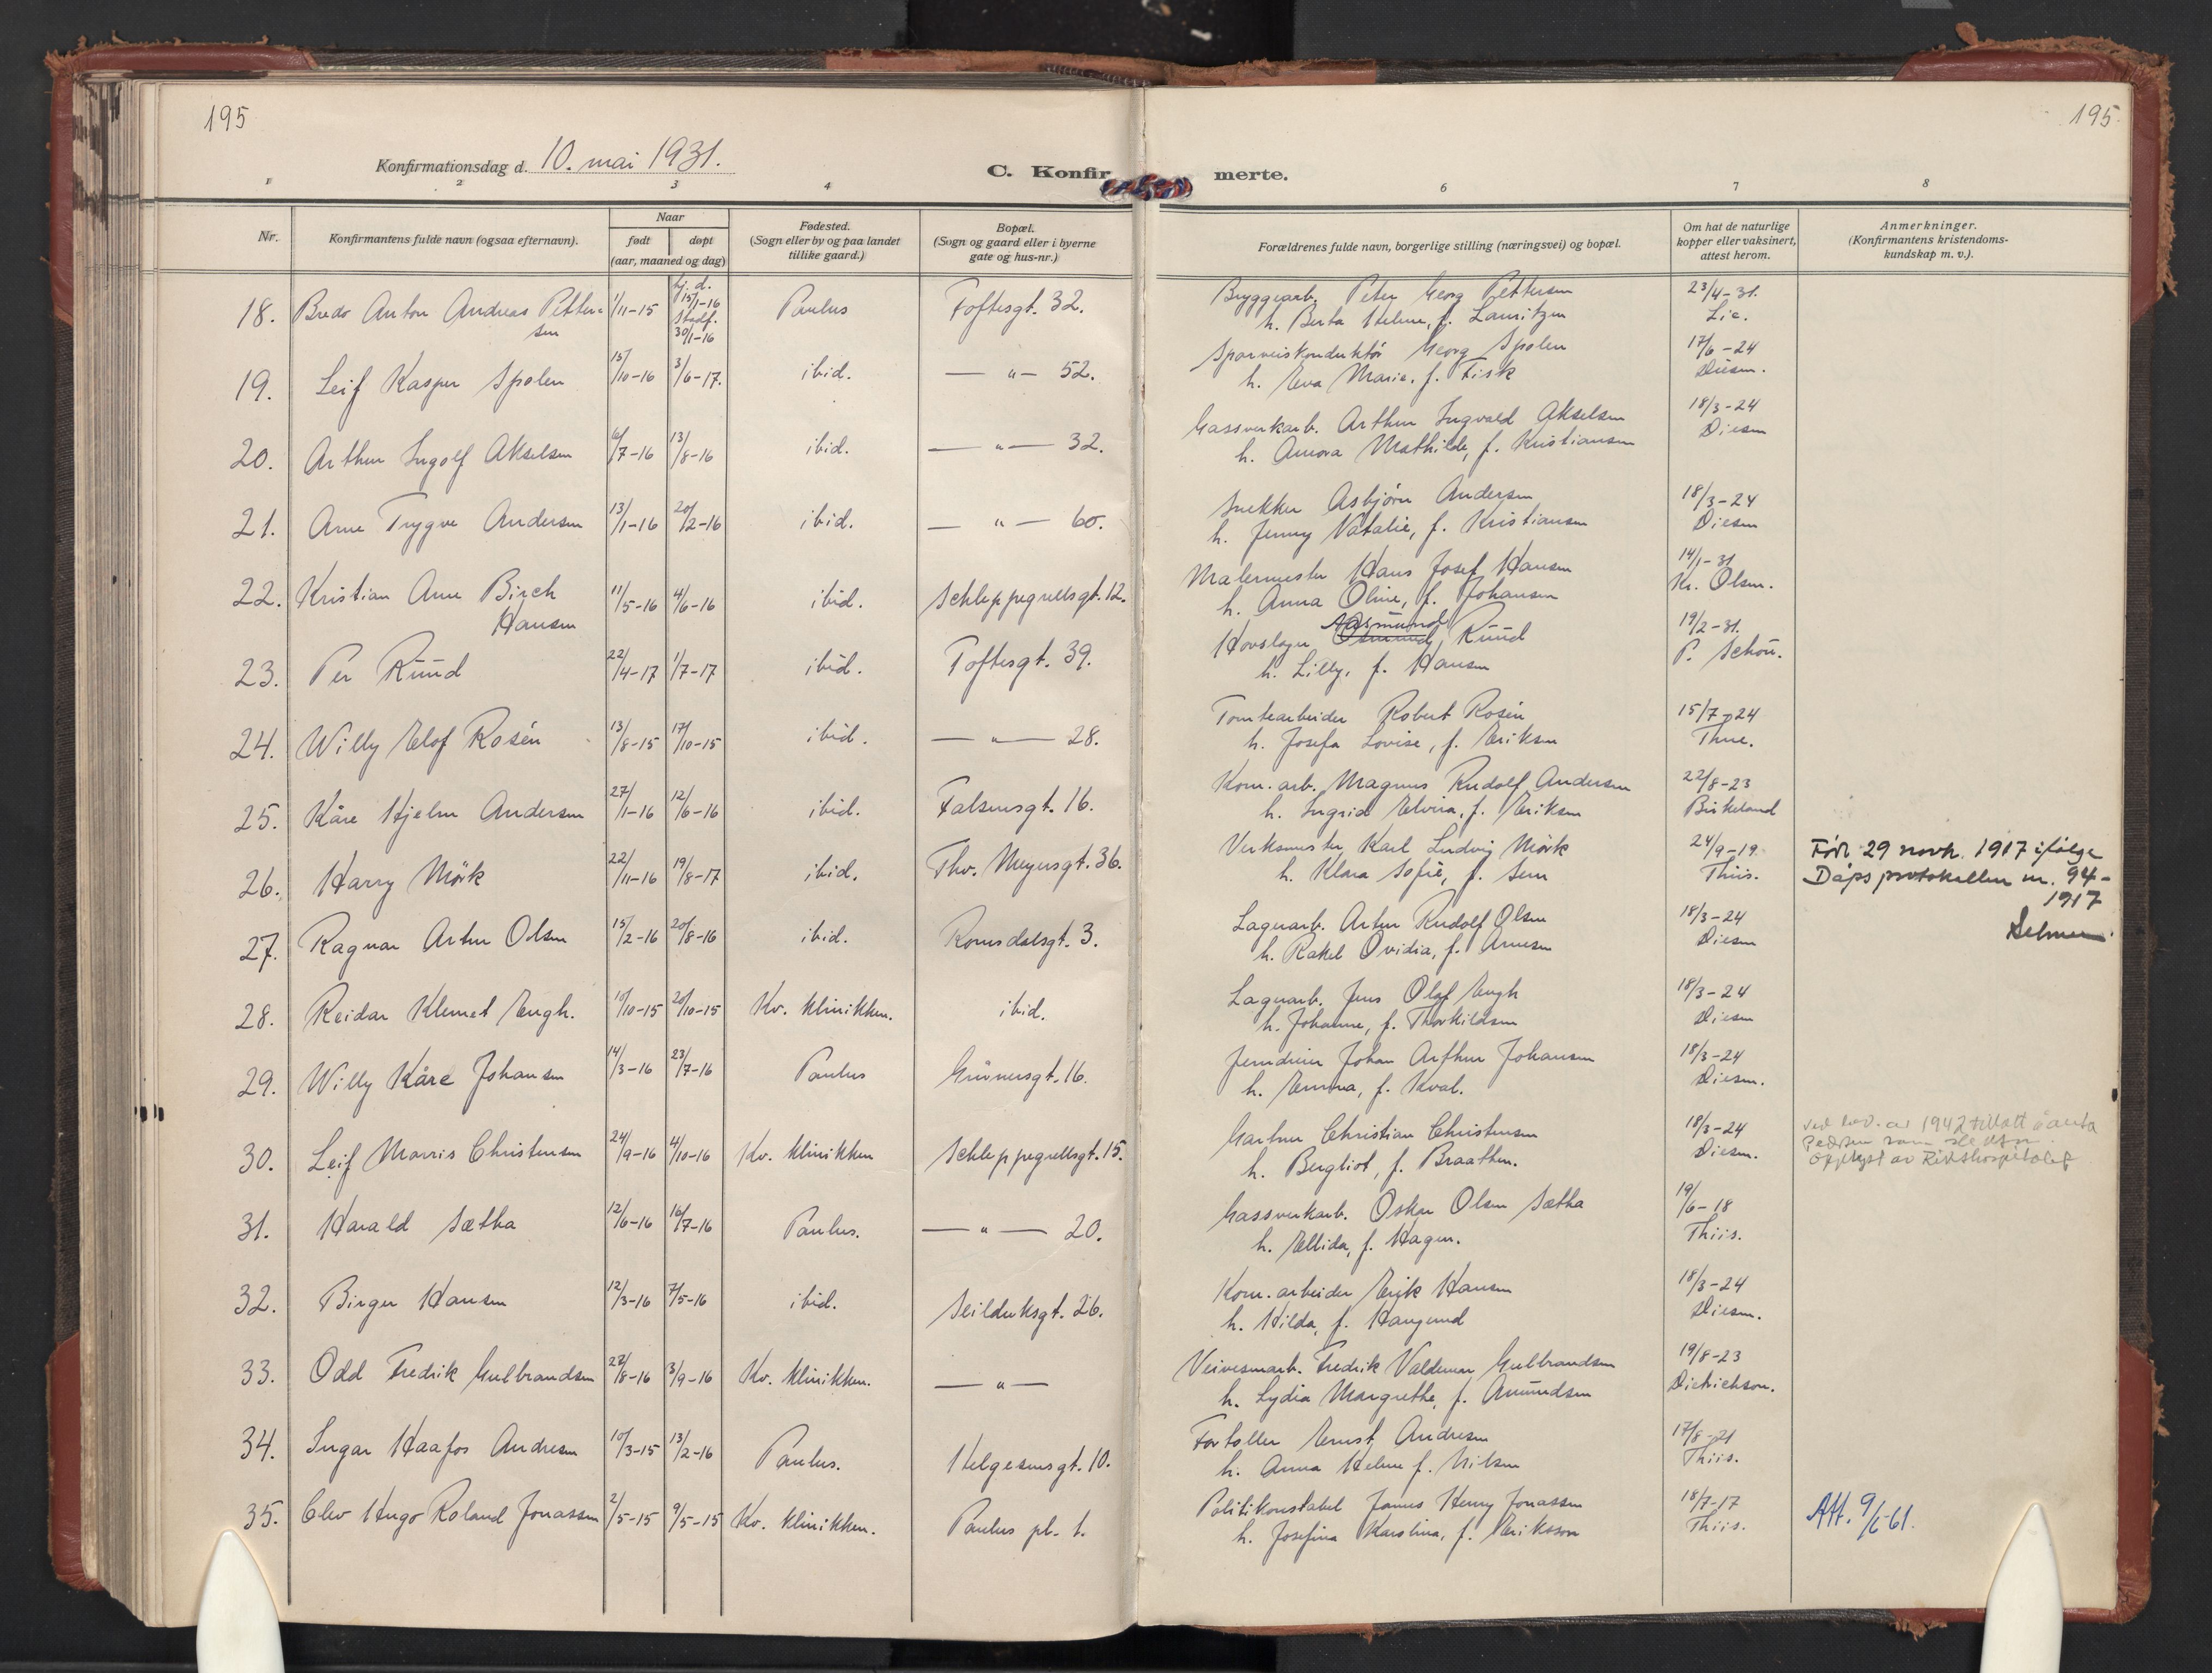 195
195
Konfirmationsdag d. 10. mai 1931.
C. Konfirmerte.
1 2 3 4 6 7 8
Nr.
Konfirmantens fulde navn (ogsaa efternavn).
Naar
født døpt
(aar, maaned og dag)
Fødested.
(Sogn eller by og paa landet
tillike gaard.)
Bopæl.
(Sogn og gaard eller i byerne
gate og hus-nr.)
Forældrenes fulde navn, borgerlige stilling (næringsvei) og bopæl.
Om hat de naturlige
kopper eller vaksinert,
attest herom.
Anmerkninger.
(Konfirmantens kristendoms-
kundskap m. v.).
18. Bredo Anton Andreas Petter-
sen
1/11-15
hj. d.
15/1-16
stadf.
30/1-16
Paulus
Toftesgt. 32.
Bryggearb. Peter Georg Pettersen
h. Berta Helene, f. Lauritzen
23/4-31.
Lie.
19. Leif Kasper Spolen
15/10-16 3/6-17. ibid. — " — 52.
Sporveiskonduktør Georg Spolen
h. Eva Marie, f. Fisk
17/6-24
Diesen.
20. Arthur Ingolf Akselsen
6/7-16 13/8-16 ibid. — " — 32.
Gassverkarb. Arthur Ingvald Akselsen
h. Aurora Mathilde, f. Kristiansen
18/3-24
Diesen
21. Arne Trygve Andersen
13/1-16 20/2-16 ibid. — " — 60.
Snekker Asbjørn Andersen
h. Jenny Natalie, f. Kristiansen
18/3-24
Diesen
22. Kristian Arne Birch
Hansen
11/5-16 4/6-16 ibid. Schleppegrellsgt. 12.
Malermester Hans Josef Hansen
h. Anna Oline, f. Johansen
14/1-31
Kr. Olsen.
23. Per Ruud
22/4-17 1/7-17 ibid. Toftesgt. 39.
Aasmund
Hovslager Osmund Ruud
h. Lilly, f. Hansen
19/2-31.
P. Schou.
24. Willy Elof Rosén
13/8-15 17/10-15 ibid. — " — 28.
Tomtearbeider Robert Rosén
h. Josefa Lovise, f. Eriksen
15/7-24
Thue.
25. Kåre Hjelm Andersen
27/1-16 12/6-16 ibid. Falsensgt. 16.
Kom. arb. Magnus Rudolf Andersen
h. Ingrid Elvira, f. Eriksen
22/8-23
Birkeland
26. Harry Mörk
22/11-16 19/8-17 ibid. Thv. Meyersgt. 36.
Verksmester Karl Ludvig Mörk
h. Klara Sofie, f.
24/9-19.
Thiis.
Född 29 novb. 1917 ifølge
Dåpsprotokollen nr. 94-
1917
Selmer
27. Ragnar Artur Olsen
15/2-16 20/8-16 ibid. Romsdalsgt. 3.
Lagerarb. Artur Rudolf Olsen
h. Rakel Ovidia, f. Arnesen
18/3-24
Diesen
28. Reidar Klemet Engh.
10/10-15 20/10-15 Kv. klinikken. ibid.
Lagerarb. Jens Olaf Engh
h. Johanne, f. Thorkildsen
18/3-24
Diesen
29. Willy Kåre Johansen
14/3-16 23/7-16 Paulus Grünersgt. 16.
Jerndreier Johan Arthur Johansen
h. Emma, f. Kval.
18/3-24
Diesen.
30. Leif Morris Christensen
24/9-16 4/10-16 Kv. klinikken Schleppegrellsgt. 15.
Gartner Christian Christensen
h. Bergliot, f. Braathen.
18/3-24
Diesen.
ved bev. av 1942 tillatt å anta
Pedersen som slektsn.
opplyst av Rikshospitalet
31. Harald Sætha
12/6-16 16/7-16 Paulus. — " — 20.
Gassverkarb. Oskar Olsen Sætha
h. Ellida, f. Hagen.
19/6-18
Thiis.
32. Birger Hansen
12/3-16 7/5-16 ibid. Seilduksgt. 26.
Kom. arbeider Erik Hansen
h. Hilda, f. Haugerud
18/3-24
Diesen.
33. Odd Fredrik Gulbrandsen
22/8-16 3/9-16 Kv. klinikken. — " —
Veivesenarb. Fredrik Valdemar Gulbrandsen
h. Lydia Margrethe, f. Amundsen
19/8-23
Dietrichson.
34. Ingar Haafos Andresen
10/3-15 13/2-16 Paulus. Helgesensgt. 10.
Fortoller Ernst Andresen
h. Anna Helene f. Nilsen
17/8-21
Thiis.
35. Clev Hugo Roland Jonassen
2/5-15 9/5-15 Kv. klinikken. Paulus pl. 1.
Politikonstabel James Henry Jonassen
h. Josefina Karolina, f. Eriksson
18/7-17
Thiis.
Att. 9/6-61.